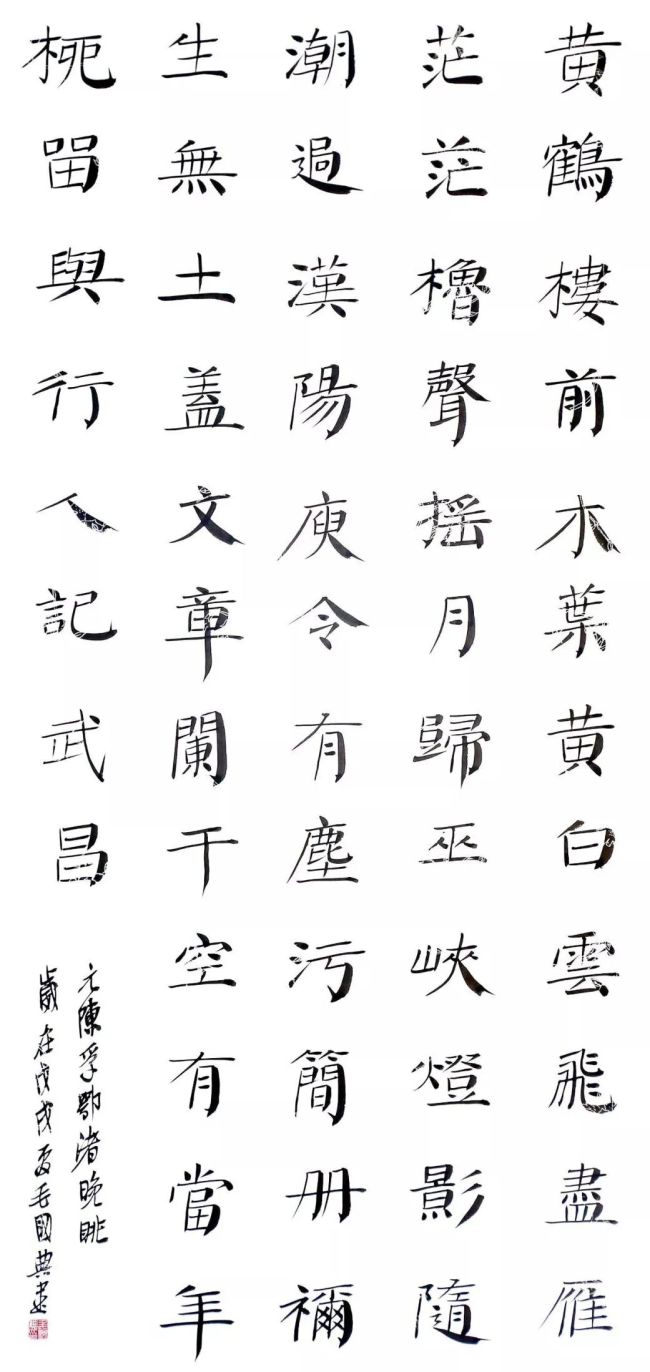 黃鶴樓前木葉黃白雲飛盡雁
茫茫櫓聲搖月歸巫峽燈影隨
潮過漢陽庾令有塵污簡冊禰
生無土蓋文章闌干空有當年
栁留與行人記武昌
元陳孚鄂渚晚眺
歲在戊戌夏毛國典書